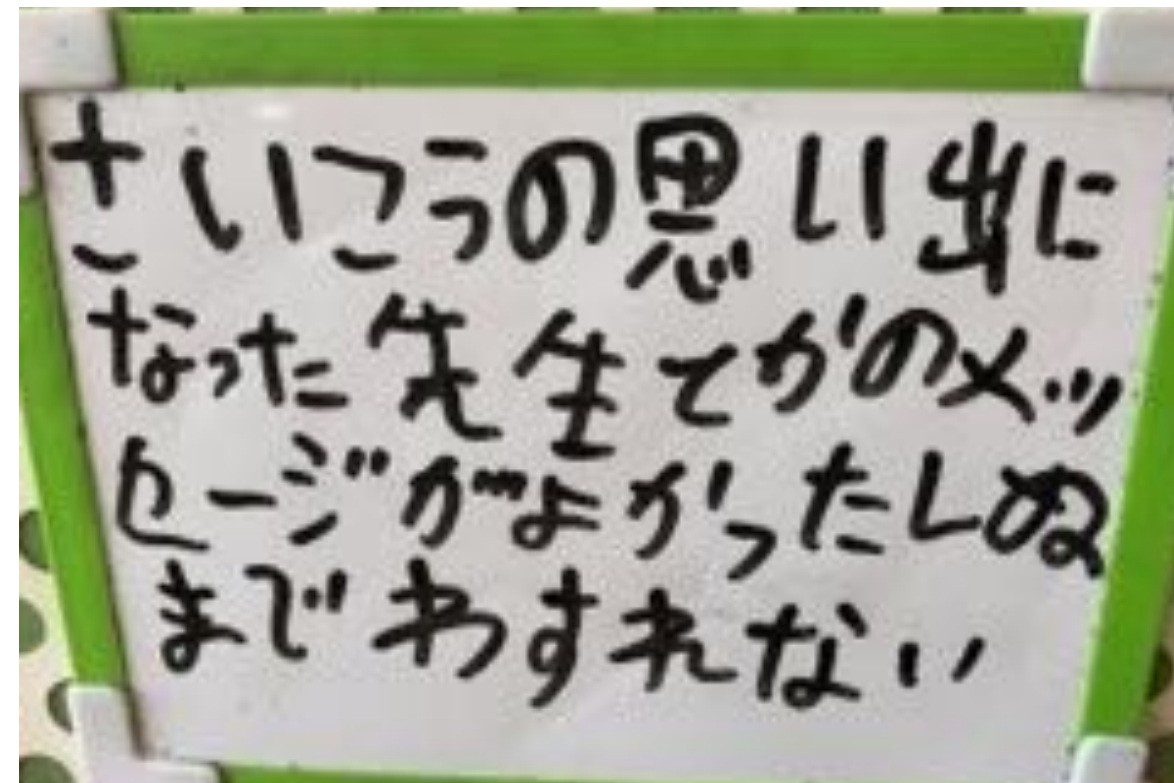 さいこうの思い出に
なった先生てかのメッ
セージがよかったしぬ
までわすれない